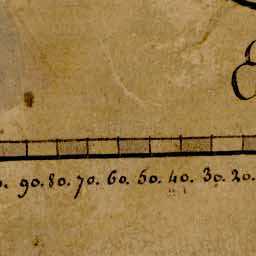 90. 80. 70. 60. 50. 40. 30. 20.